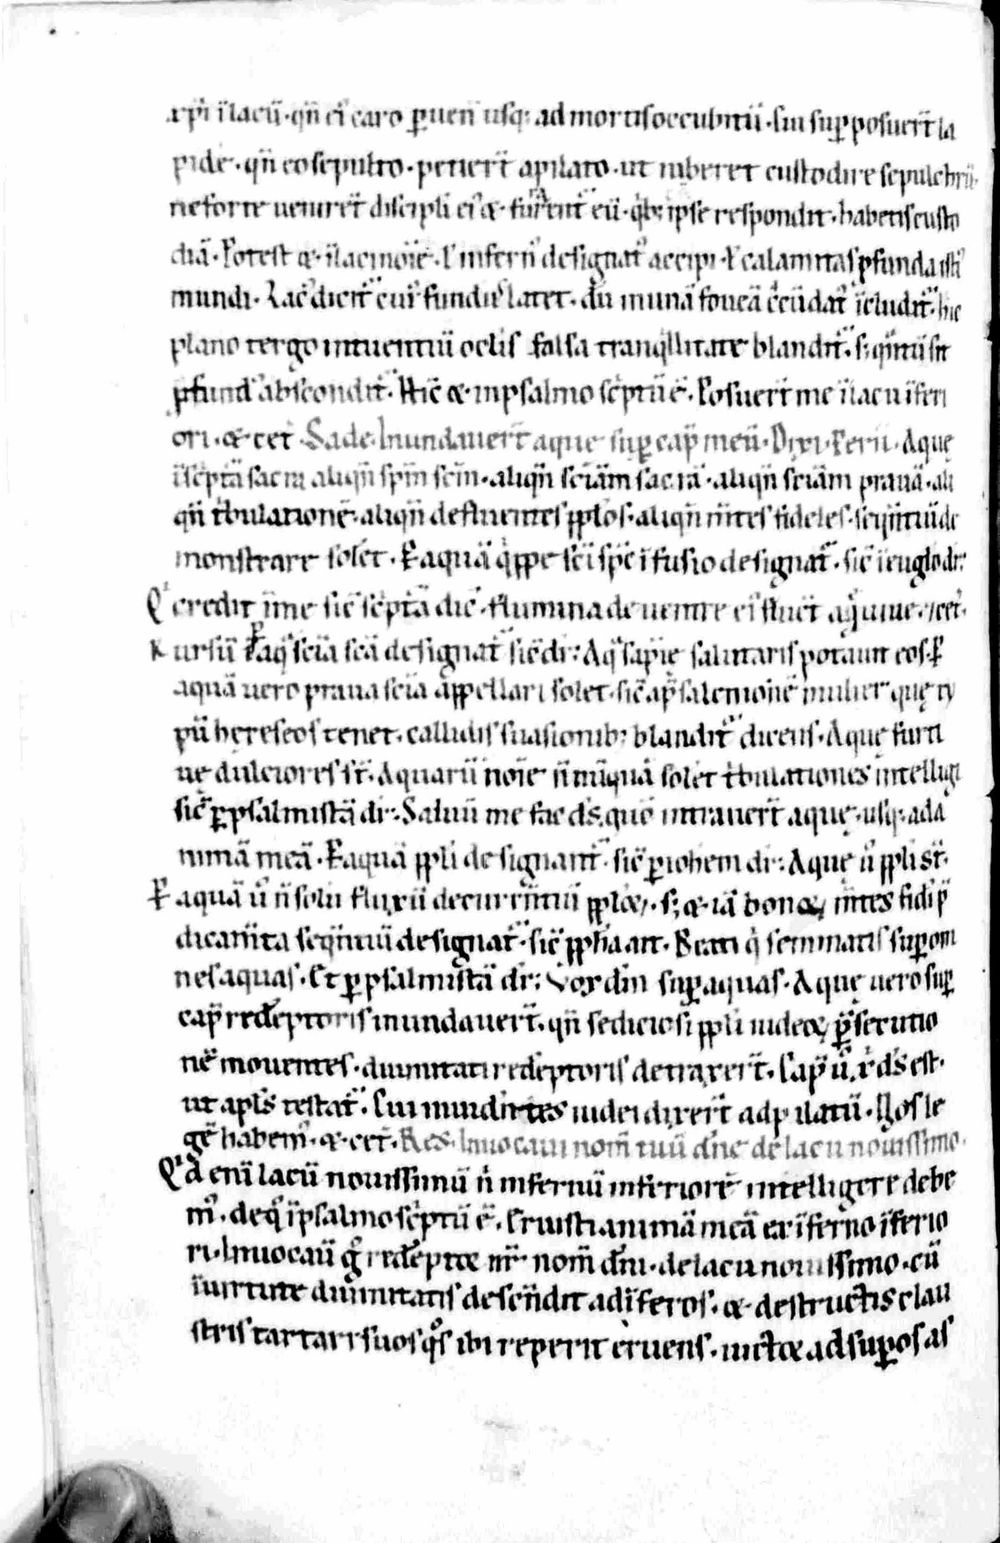 xpi ilacū · qn̄ ei' caro puen usq; ad mortis occubitū · sui suppoſuer̄t la
pidē · qn̄ eo sepulto · petier̄t a pilato · ut iuberet custodire sepulchrū ·
ne forte uenirēt discipli ei' & furarent' eū · qb; ipse respondit · habetis custo
diā · Potest & ī laci noīe · l' infern' designat' accipi · l' calamitas pfunda isti'
mundi · Lac' dicit' cui' fundus latet · dū munā foueā
plano tergo intuentiū oclis falsa tranqllitate blandit' · s; qntū sit
pfund' abscondit' · Hīc & in psalmo scptū ē · Posuer̄t me ī lacu īferi
ori · & cet' · Sade · Inundauer̄t aque sup cap meū · Dixi · Perii · Aque
ī scptā sacra aliqn̄ spm̄ scm̄ · aliqn̄ sciā̄m sacrā · aliqn̄ sciā̄m prauā · ali
qn̄ tbulationē · aliqn̄ defluentes pplos · aliqn̄ m̄tes fideles · seq̄ntiū de
monstrare solet · P aquā qppe sc̄i sp̄c īfusio designat' · sic̄ ī euglo dr̄:
Q' credit ī me sic̄ scptā dic̄ · flumina de uentre ei' fluēt aq uiue · & cet' ·
Rursū p aq sciā scā designat' sic̄ dr̄: Aq sapīe salutaris potauit eos · P
aquā uero praua sciā appellari solet · sic̄ ap salemonē mulier quę ty
pū hereseos tenet · callidis suasionib; blandit' dicens · Aquę furti
uę dulciores st̄ · Aquarū noīe n̄ nūquā solet tbulationes intelligi
sic̄ p psalmistā dr̄: Saluū me fac ds̄, quō intrauer̄t aquę · usq; ad a
nimā meā · P aquā ppli designant' · sic̄ p iohem dr̄: Aquę ū ppli st̄ ·
P aquā ū n̄ solū fluxū decurrentiū pploꝝ · s; & iā bonoꝝ m̄tes fidi p
dicam̄ta seq̄ntiū designat' · sic̄ ppha ait · Beati q seminatis sup om
nes aquas · Et p psalmistā dr̄: Vox dn̄i sup aquas · Aquę uero sup
cap redēptoris inundauer̄t · qn̄ sediciosi ppli iudeoꝝ psecutio
nē mouentes · diuinitati redēptoris detraxer̄t · Cap ū x̄ ds̄ est ·
ut apls̄ testat' · Cui inuidentes iudei dixer̄t ad pilatū · Nos le
gē habem' · & cet' · Res · Inuocaui nom̄ tuū dn̄e de lacu nouissimo ·
Qd enī lacū nouissimū n̄ infernū inferiorē intelligere debe
m' · de q' ī psalmo scptū ē · Eruisti animā meā ex īferno īferio
ri · Inuocauit g° redēptoꝝ nr̄ nom̄ dn̄i · de lacu nouissimo · cū
ī uirtute diuinitatis descēndit ad īferos · & destructis clau
stris tartari suos q°s ibi reperit eruens · uictoꝝ ad supos as